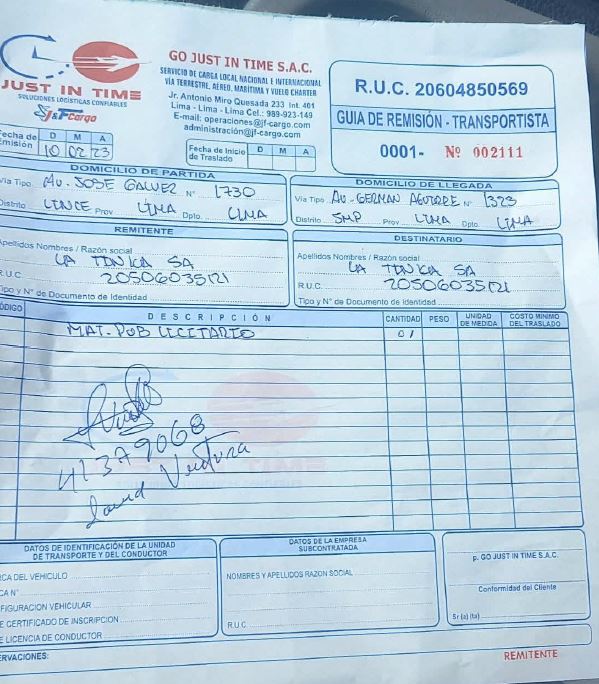 JUST IN TIME
SOLUCIONES LOGÍSTICAS CONFIABLES
J&F Cargo
GO JUST IN TIME S.A.C.
SERVICIO DE CARGA LOCAL NACIONAL E INTERNACIONAL
VÍA TERRESTRE, AÉREO, MARÍTIMA Y VUELO CHARTER
Jr. Antonio Miro Quesada 233 Int. 401
Lima - Lima - Lima Cel.: 989-923-149
E-mail: operaciones@jf-cargo.com
administración@jf-cargo.com
R.U.C. 20604850569
GUIA DE REMISIÓN - TRANSPORTISTA
0001- Nº 002111
Fecha de Emisión D M A
10 02 23
Fecha de Inicio de Traslado D M A
DOMICILIO DE PARTIDA
Vía Tipo AV. JOSE GALVEZ Nº 1730
Distrito LINCE Prov LIMA Dpto. LIMA
DOMICILIO DE LLEGADA
Vía Tipo AV. GERMAN AGUIRRE Nº 1323
Distrito SMP Prov LIMA Dpto. LIMA
REMITENTE
Apellidos Nombres / Razón social
LA TINKA SA
R.U.C. 20506035121
Tipo y Nº de Documento de Identidad
DESTINATARIO
Apellidos Nombres / Razón social
LA TINKA SA
R.U.C. 20506035121
Tipo y Nº de Documento de Identidad
CÓDIGO DESCRIPCIÓN CANTIDAD PESO UNIDAD DE MEDIDA COSTO MINIMO DEL TRASLADO
MAT. PUBLICITARIO 01
41379068
Ventura
JUST IN TIME
DATOS DE IDENTIFICACIÓN DE LA UNIDAD
DE TRANSPORTE Y DEL CONDUCTOR
RCA DEL VEHICULO
CA Nº
FIGURACION VEHICULAR
E CERTIFICADO DE INSCRIPCION
E LICENCIA DE CONDUCTOR
DATOS DE LA EMPRESA
SUBCONTRATADA
NOMBRES Y APELLIDOS RAZON SOCIAL
R.U.C.
p. GO JUST IN TIME S.A.C.
Conformidad del Cliente
Sr(a) (ta)
ERVACIONES:
REMITENTE